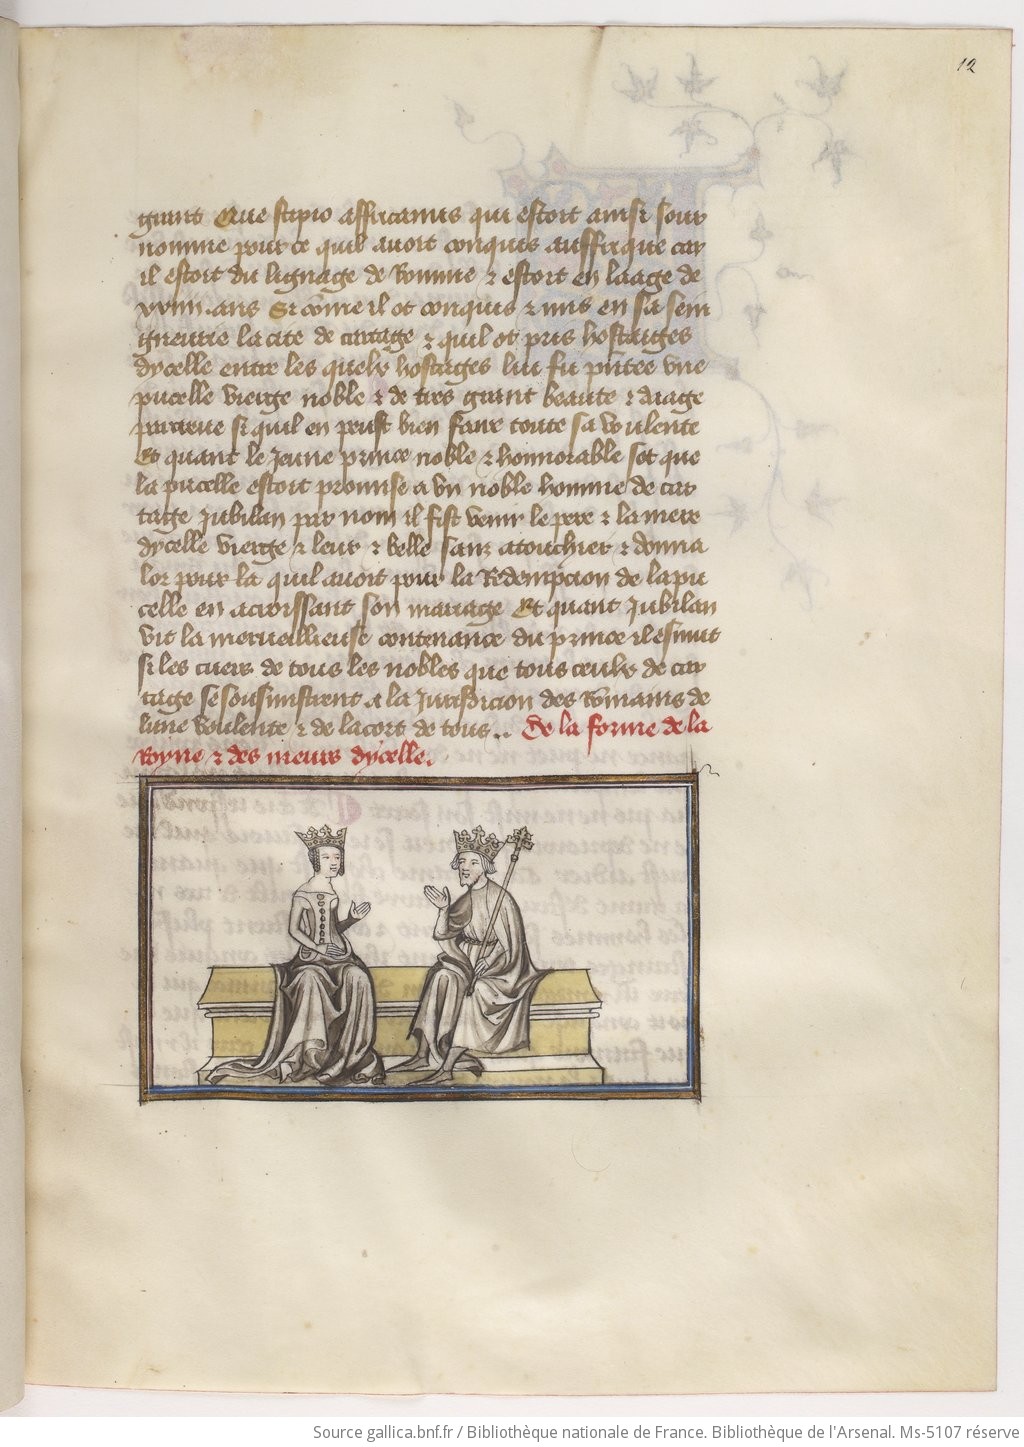 12
graint Que scipio affricanus qui estoit ainsi sour
nomme pour ce quil auoit conquis auffrique car
il estoit du lignage de Romme & estoit en laage de
xxiiii. ans Et cōme il ot conquis & mis en sa sein
gneurie la cite de cartage & quil ot pris hostaiges
dycelle entre les quelx hostages lui fu pn̄tee vne
pucelle vierge noble & de tres grant beaute & daage
parcreue si quil en peust bien faire toute sa voulente
Et quant le jeune prince noble & honnorable sot que
la pucelle estoit promise a vn noble homme de car
tage Jubilan par nom il fist venir le pere & la mere
dycelle vierge & leur & belle sanz atouchier & donna
lor pour la quil auoit pour la Redempcion de la pu
celle en acroissant son mariage Et quant Jubilan
vit la merueillieuse contenance du prince il esmut
si les cuers de tous les nobles que tous ceulx de car
tage se sousmistrent a la Juridicion des Rōmains de
lune voulente & de lacort de tous.. De la forme de la
Royne & des meurs dycelle.
Source gallica.bnf.fr / Bibliothèque nationale de France. Bibliothèque de l'Arsenal. Ms-5107 réserve